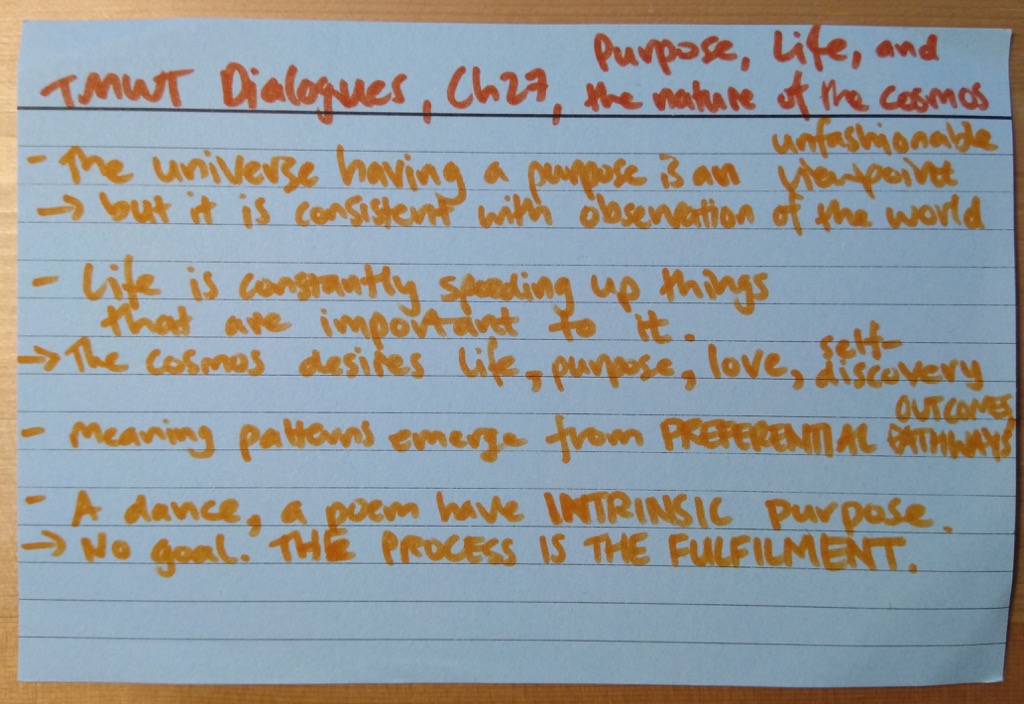 Purpose, Life, and
TMWT Dialogues, Ch27, the nature of the cosmos
unfashionable
- The universe having a purpose is an viewpoint
→ but it is consistent with observation of the world
- Life is constantly speeding up things
that are important to it.
→ The cosmos desires life, purpose, love, self-
discovery
OUTCOMES,
- Meaning patterns emerge from PREFERENTIAL PATHWAYS
- A dance, a poem have INTRINSIC purpose.
→ No goal. THE PROCESS IS THE FULFILMENT.